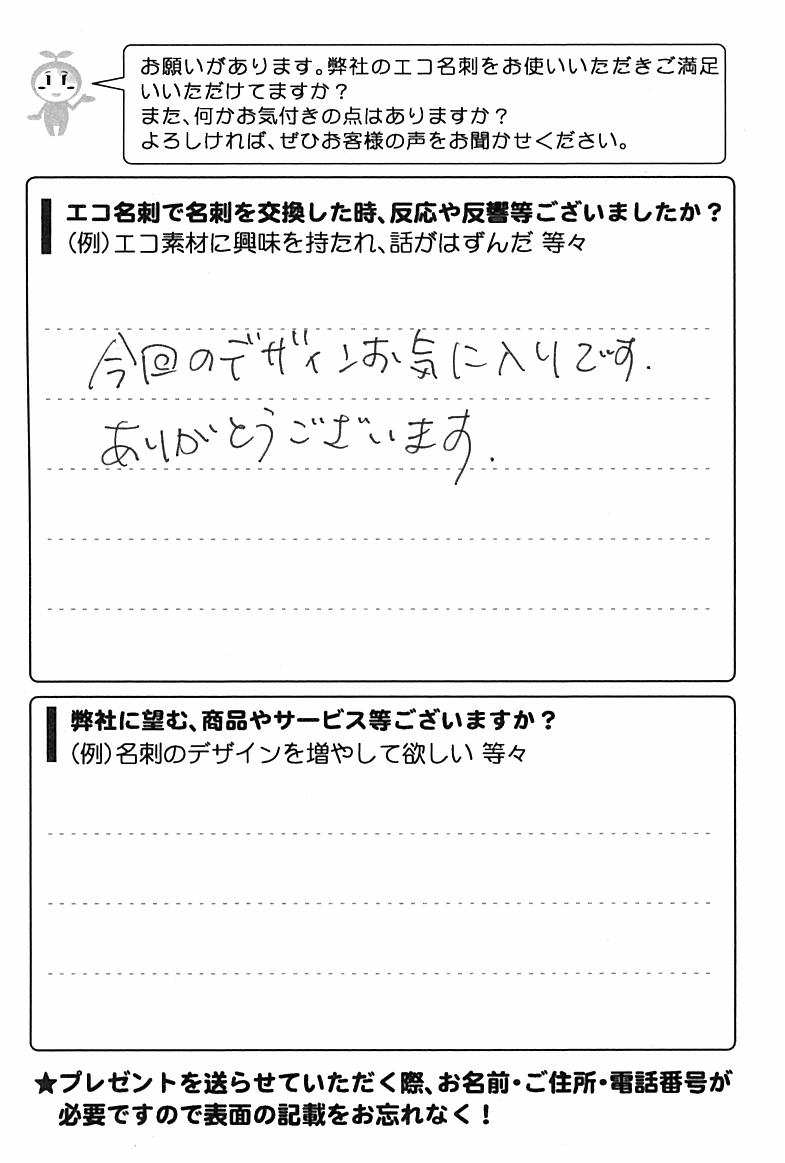 お願いがあります。弊社のエコ名刺をお使いいただきご満足
いいただけてますか？
また、何かお気付きの点はありますか？
よろしければ、ぜひお客様の声をお聞かせください。
エコ名刺で名刺を交換した時、反応や反響等ございましたか？
（例）エコ素材に興味を持たれ、話がはずんだ 等々
今回のデザインお気に入りです.
ありがとうございます.
弊社に望む、商品やサービス等ございますか？
（例）名刺のデザインを増やして欲しい 等々
★プレゼントを送らせていただく際、お名前・ご住所・電話番号が
必要ですので表面の記載をお忘れなく！